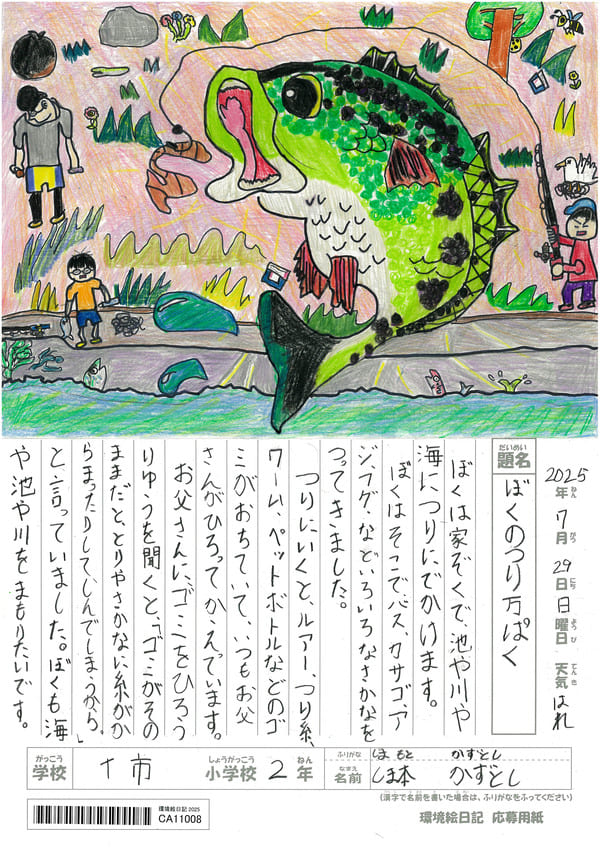 2025年7月29日日曜日 天気はれ
ねん がつ にち ようび てんき
だいめい
題名
ぼくのつり万ぱく
ぼくは家ぞくで、池や川や
海につりにでかけます。
ぼくはそこでバス、カサゴ、ア
ジ、フグ、などいろいろなさかなを
つってきました。
つりにいくと、ルアー、つり糸、
ワーム、ペットボトルなどのゴ
ミがおちていて、いつもお父
さんがひろってかえています。
お父さんに、ゴミをひろう
りゆうを聞くと、「ゴミがその
ままだと、とりやさかなに糸がか
らまったりしてしんでしまうから。」
と、言っていました。ぼくも海
や池や川をまもりたいです。
がっこう しょうがっこう ねん
学校 十市 小学校 2年
ふりがな しまもと かずとし
なまえ
名前 しま本 かずとし
(漢字で名前を書いた場合は、ふりがなをふってください)
環境絵日記 2025
CA11008
環境絵日記 応募用紙